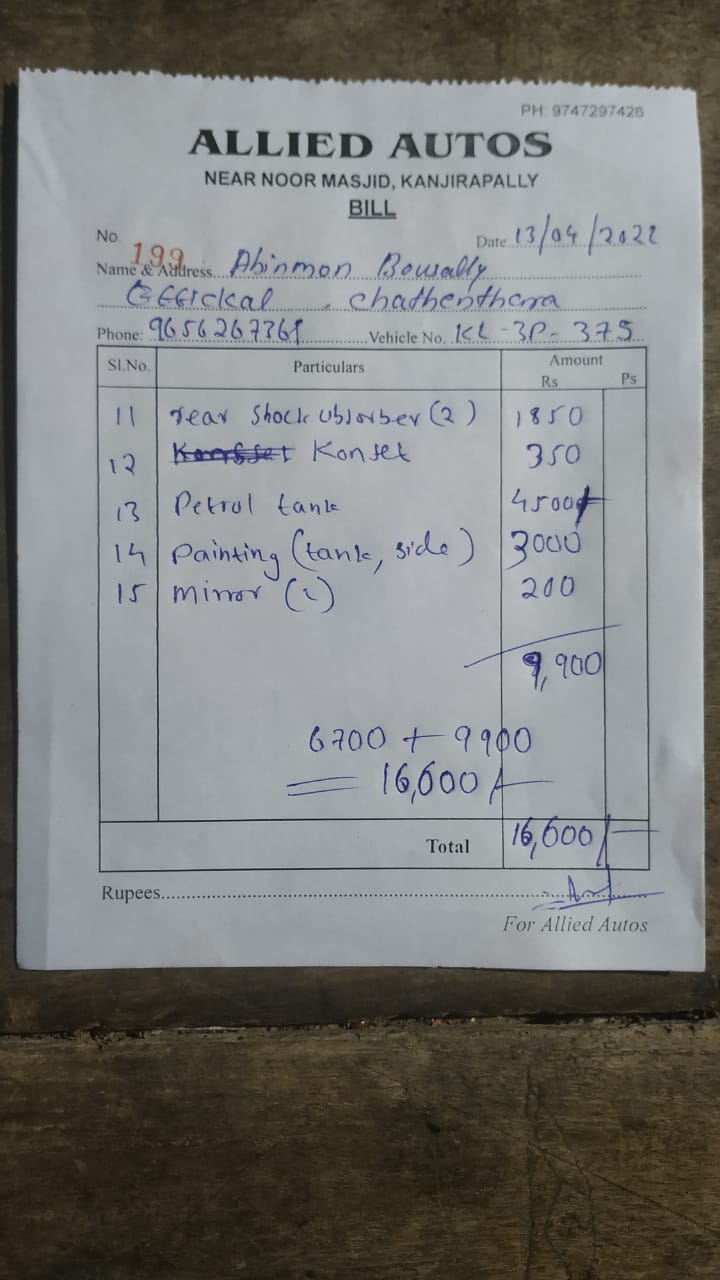 PH: 9747297426
ALLIED AUTOS
NEAR NOOR MASJID, KANJIRAPALLY
BILL
No. 199
Date 13/04/2022
Name & Address Abinmon
Chathenthara
Phone: Vehicle No. KL-3P-375
Sl.No. Particulars Amount
Rs Ps
11 rear shock ubsorber (2) 1850
12 Konset 350
13 Petrol tank 4500
14 painting (tank, side) 3000
15 mirror (2) 200
9,900
6700 + 9900
= 16,600/-
Total 16,600/-
Rupees
For Allied Autos